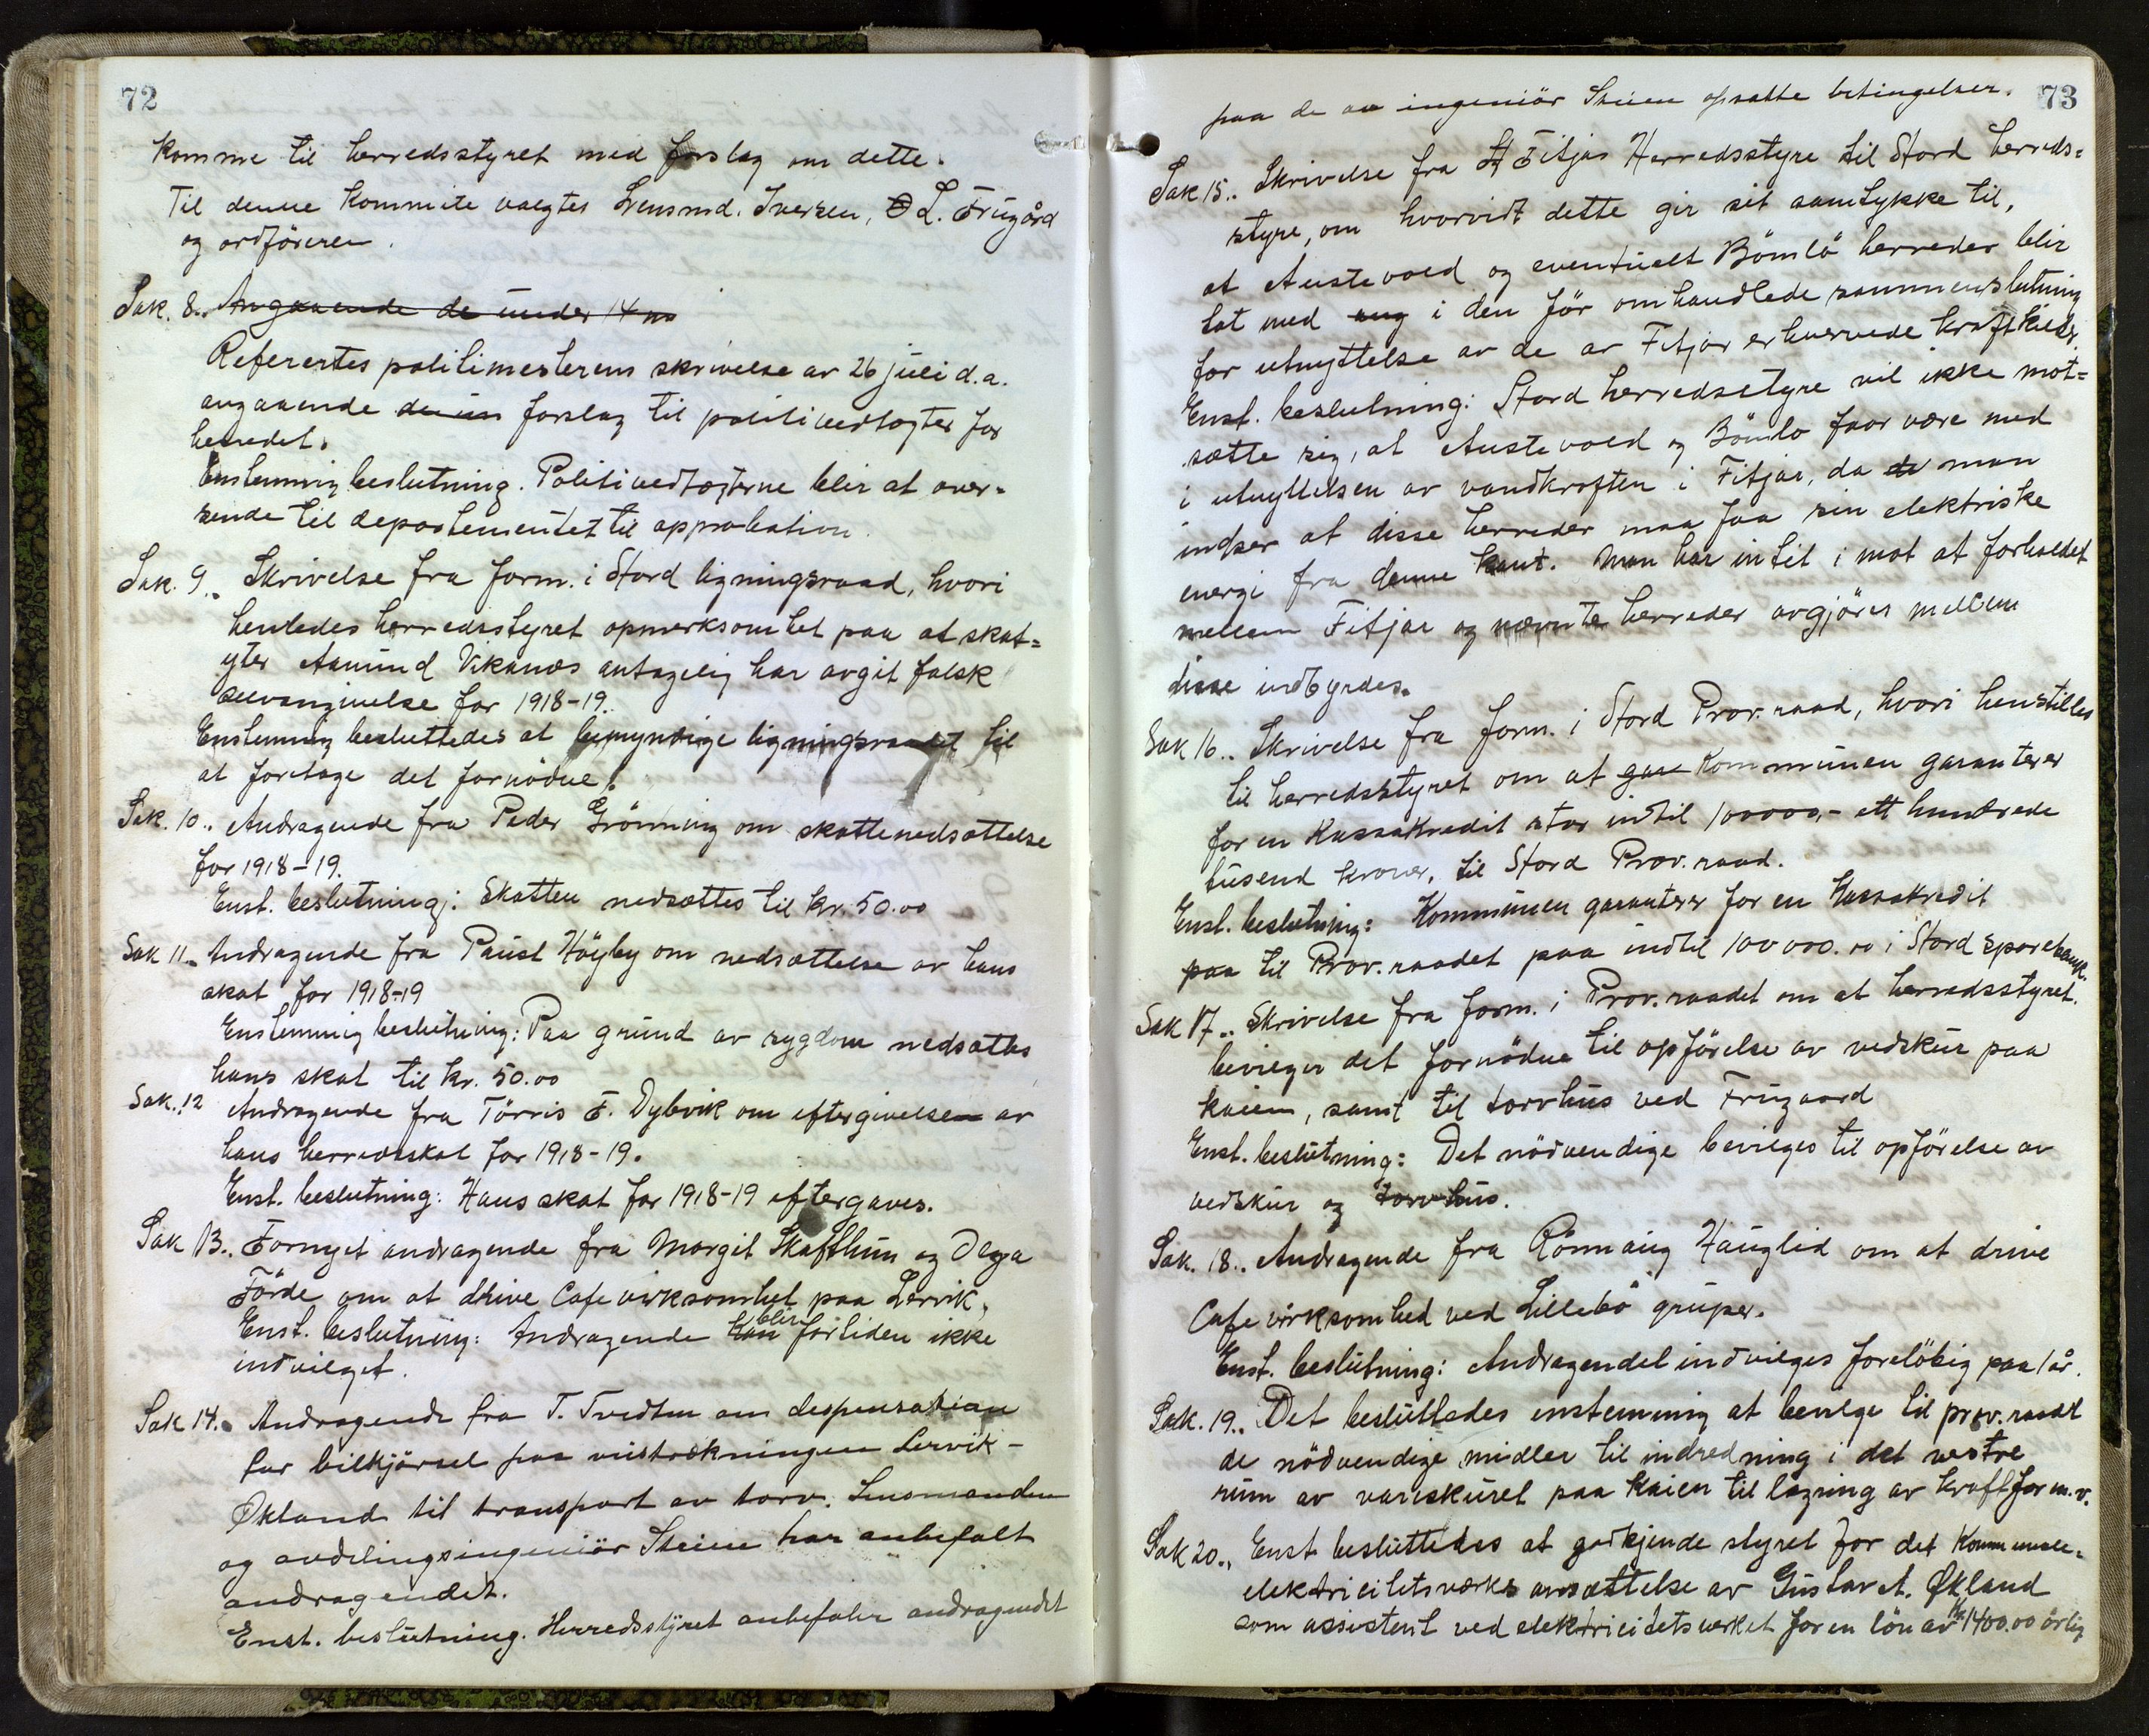 72
komme til herredsstyret med forslag om dette.
Til denne Kommite valgtes Lensmd. Iversen, L. Frugård
og ordföreren.
Sak. 8.. Angaaende de under 14
Referertes politimesterens skrivelse av 26 juli d.a.
angaaende forslag til politivedtægter for
herredet.
Enstemmig beslutning. Politivedtægterne blir at over-
sende til departementet til approbation.
Sak. 9.. Skrivelse fra form. i Stord ligningsraad, hvori
henledes herredsstyret opmerksomhet paa at skat=
yter Aamund Vikanæs antagelig har avgit falsk
selvangivelse for 1918-19.
Enstemmig besluttedes at bemyndige ligningsraadet til
at foretage det fornödne.
Sak. 10.. Andragende fra Peder Grönning om skattenedsættelse
for 1918-19.
Enst. beslutning: Skatten nedsættes til kr. 50.00
Sak 11.. Andragende fra Paust Höyby om nedsættelse av hans
skat for 1918-19
Enstemmig beslutning: Paa grund av sygdom nedsættes
hans skat til kr. 50.00
Sak. 12 Andragende fra Törris F. Dybvik om eftergivelsen av
hans herredsskat for 1918-19.
Enst. beslutning: Hans skat for 1918-19 eftergaves.
Sak 13.. Fornyet andragende fra Margit Skafthun og Olga
Förde om at drive Cafe virksomhet paa Lervik.
Enst. beslutning: Andragende kan blir forliden ikke
indvilget.
Sak 14.. Andragende fra T. Tvedten om despensasian
for bilkjörsel paa veistrækningen Lervik -
Økland til transport av torv. Lensmanden
og avdelingsingeniör Steien har anbefalt
andragendet.
Enst. beslutning. Herredsstyret anbefaler andragendet
73
paa de av ingeniör Steien opsatte betingelser.
Sak 15.. Skrivelse fra Fitjar Herredsstyre til Stord herreds=
styre, om hvorvidt dette gir sit samtykke til,
at Austevold og eventuelt Bömlö herreder blir
tat med i den för omhandlede sammenslutning
for utnyttelse av de av Fitjar erhvervede kraftkilder.
Enst. beslutning: Stord herredsstyre vil ikke mot=
sætte sig, at Austevold og Bömlo faar være med
i utnyttelsen av vandkraften i Fitjar, da de man
indser at disse herreder maa faa sin elektriske
energi fra denne kant. Man har intet i mot at forholdet
mellem Fitjar og nævnte herreder avgjöres mellem
disse indbyrdes.
Sak 16.. Skrivelse fra form. i Stord Prov. raad, hvori henstilles
til herredsstyret om at gar Kommunen garanterer
for en Kassakredit stor indtil 100000,- ett hundrede
tusend kroner, til Stord Prov. raad.
Enst. beslutning: Kommunen garanterer for en Kassakredit
paa til Prov. raadet paa indtil 100000.00 i Stord sparebank.
Sak 17.. Skrivelse fra form. i Prov. raadet om at herredsstyret.
bevilger det fornödne til opförelse av vedskur paa
kaien, samt til torvhus ved Frugaard
Enst. beslutning: Det nödvendige bevilges til opförelse av
vedskur og torvhus.
Sak. 18.. Andragende fra Rönnaug Hauglid om at drive
Cafe virksomhed ved Lillebö gruper.
Enst. beslutning: Andragendet indvilges forelöbig paa 1 år.
Sak. 19.. Det besluttedes enstemmig at bevilge til prov. raadet
de nödvendige midler til indredning i det vestre
rum av vareskuret paa Kaien til lagring av kraftfor m.v.
Sak 20.. Enst besluttedes at godkjende styret for det Kommunale-
elektricitetsværks ansættelse av Gustav A. Økland
som assistent ved elektricitetsverket for en lön av kr. 1400.00 årlig